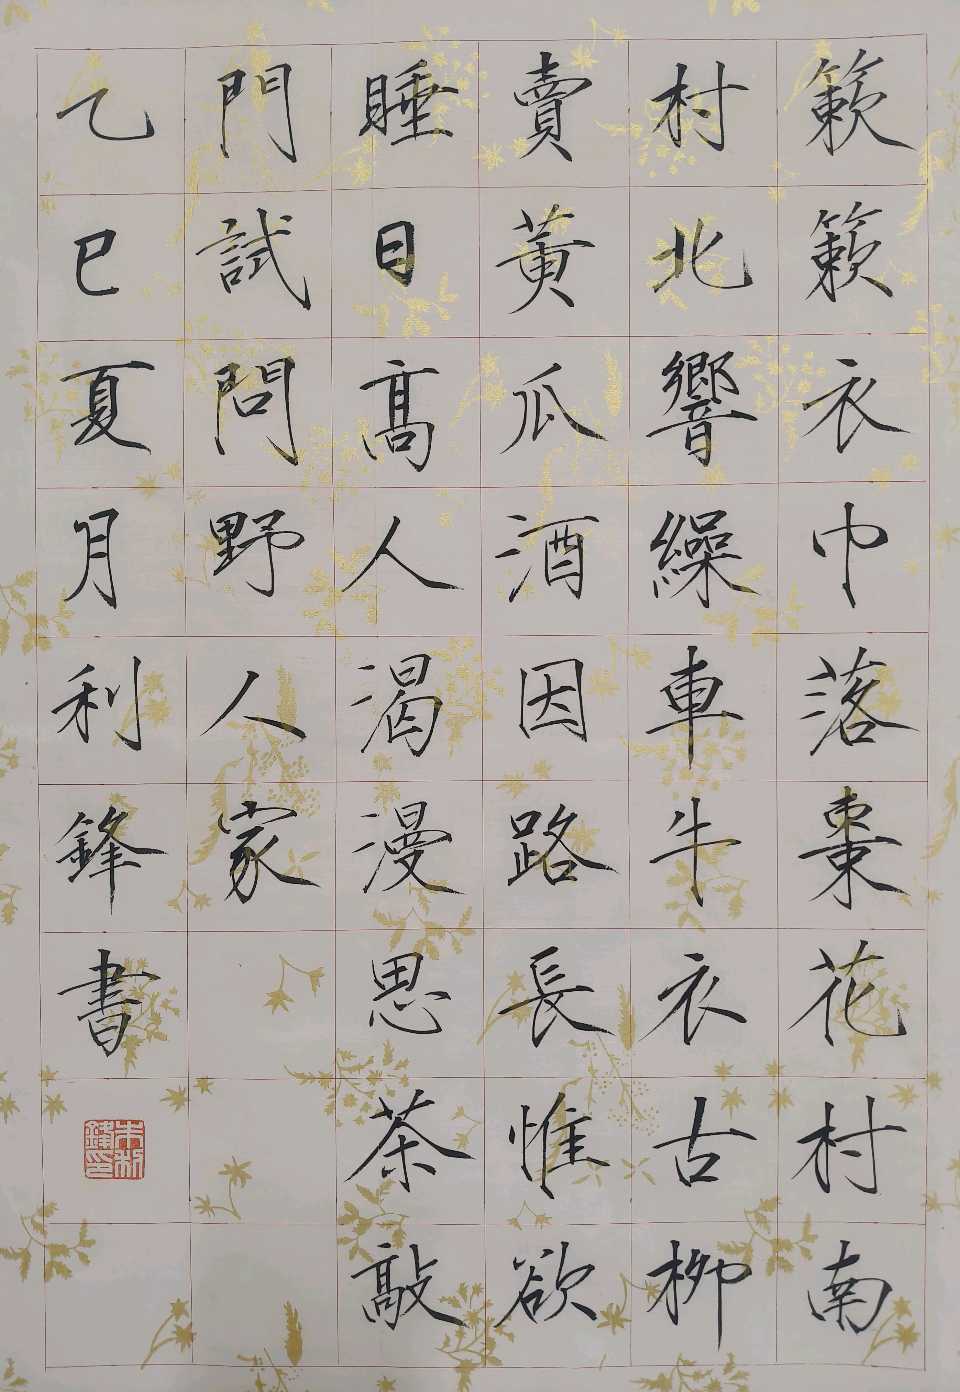 簌簌衣巾落棗花村南
村北響繰車牛衣古柳
賣黃瓜酒因路長惟欲
睡日高人渴漫思茶敲
門試問野人家
乙巳夏月利鋒書
朱利鋒印